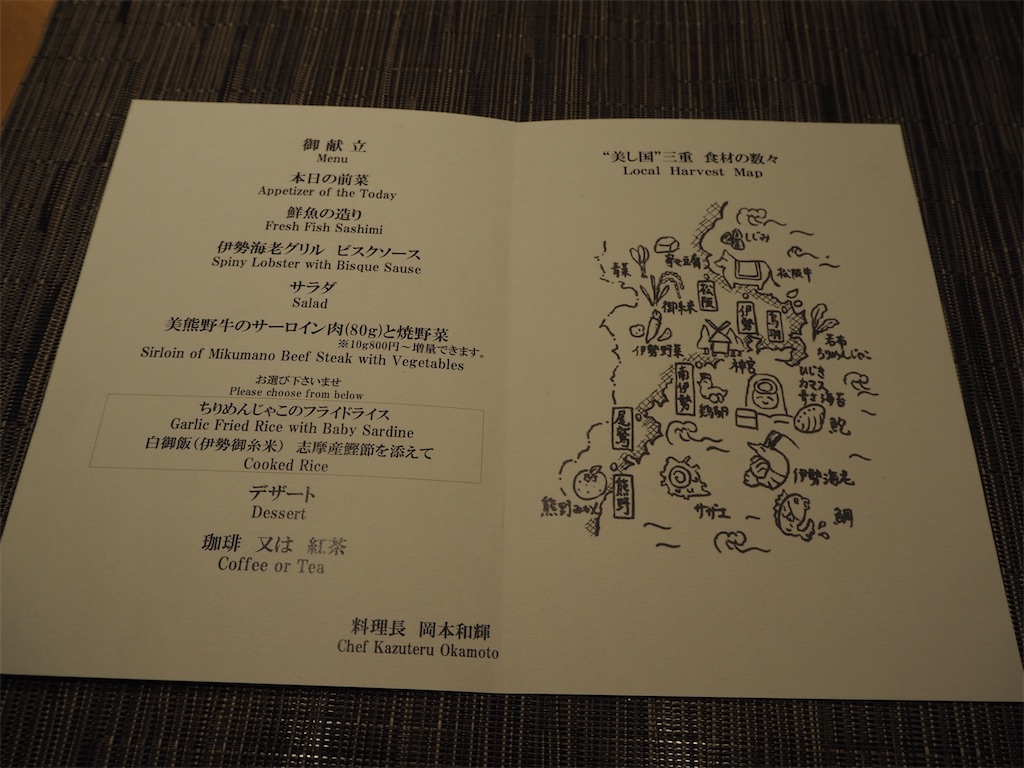 御献立
Menu
本日の前菜
Appetizer of the Today
鮮魚の造り
Fresh Fish Sashimi
伊勢海老グリル ビスクソース
Spiny Lobster with Bisque Sause
サラダ
Salad
美熊野牛のサーロイン肉(80g)と焼野菜
※10g800円～増量できます。
Sirloin of Mikumano Beef Steak with Vegetables
お選び下さいませ
Please choose from below
ちりめんじゃこのフライドライス
Garlic Fried Rice with Baby Sardine
白御飯(伊勢御糸米) 志摩産鰹節を添えて
Cooked Rice
デザート
Dessert
珈琲 又は 紅茶
Coffee or Tea
料理長 岡本和輝
Chef Kazuteru Okamoto
“美し国”三重 食材の数々
Local Harvest Map
しじみ
寄せ豆腐
青菜
松阪牛
松阪
御糸米
伊勢
鳥羽
伊勢野菜
神宮
若布
ちりめんじゃこ
ひじき
カマス
青さ海苔
南伊勢
鶏卵
鮑
尾鷲
伊勢海老
熊野
熊野みかん
サザエ
鯛